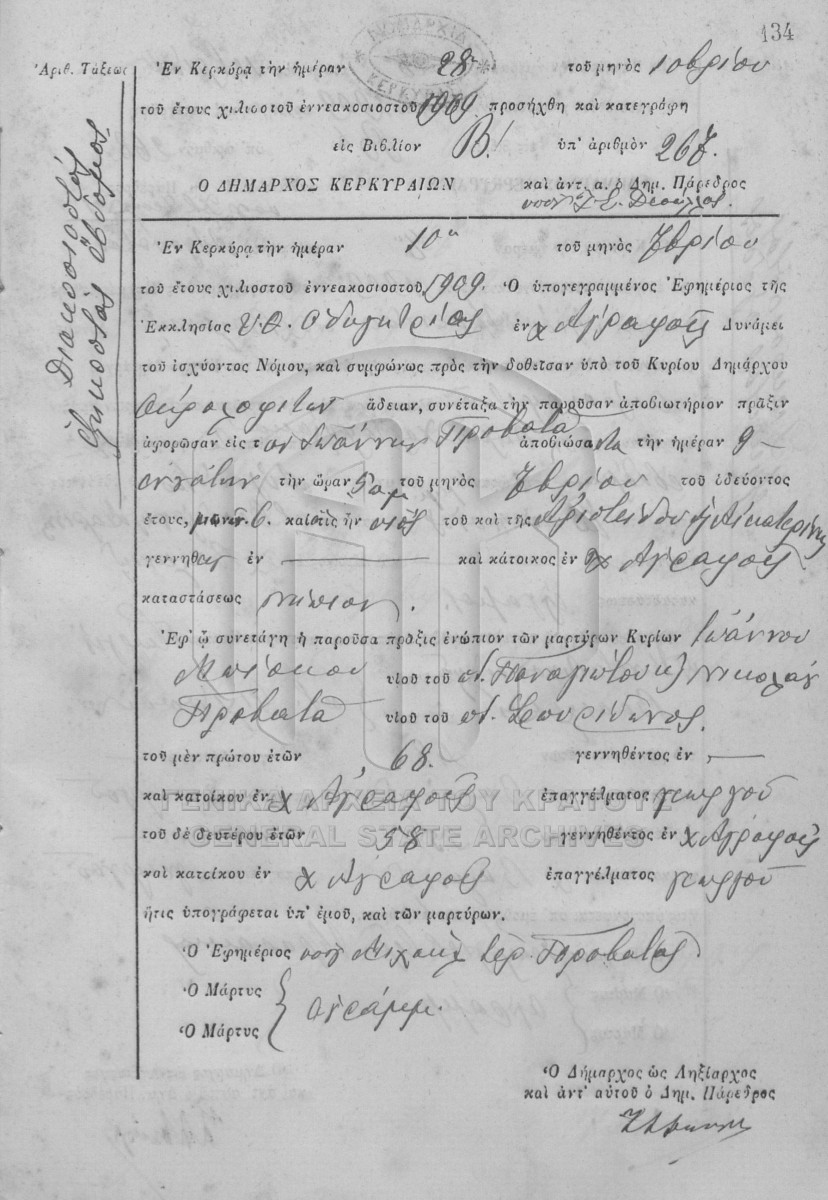 134
ΝΟΜΑΡΧΙΑ
ΚΕΡΚΥΡΑΣ
Ἀριθ. Τάξεως
Διακοσιοστός ἑξηκοστός ἕβδομος
Ἐν Κερκύρᾳ τὴν ἡμέραν 28 τοῦ μηνὸς 10βρίου
τοῦ ἔτους χιλιοστοῦ ἐννεακοσιοστοῦ 1909 προσήχθη καὶ κατεγράφη
εἰς Βιβλίον Β! ὑπ' ἀριθμὸν 267.
Ο ΔΗΜΑΡΧΟΣ ΚΕΡΚΥΡΑΙΩΝ καὶ ἀντ. α. ὁ Δημ. Πάρεδρος
Ἐν Κερκύρᾳ τὴν ἡμέραν 10 τοῦ μηνὸς 7βρίου
τοῦ ἔτους χιλιοστοῦ ἐννεακοσιοστοῦ 1909. Ὁ ὑπογεγραμμένος Ἐφημέριος τῆς
Ἐκκλησίας Υ.Θ. Οδηγητρίας ἐν χ Αγραφοῖς Δυνάμει
τοῦ ἰσχύοντος Νόμου, καὶ συμφώνως πρὸς τὴν δοθεῖσαν ὑπὸ τοῦ Κυρίου Δημάρχου
ἄδειαν, συνέταξα τὴν παροῦσαν ἀποβιωτήριον πρᾶξιν
ἀφορῶσαν εἰς τ ον Ἰωάννην Προβατᾶ ἀποβιώσαντα τὴν ἡμέραν 9
ογδόην τὴν ὥραν 5 π μ τοῦ μηνὸς 7βρίου τοῦ ὁδεύοντος
ἔτους, μηνῶν 6. καθεὶς ἦν υἱὸς τοῦ καὶ τῆς Ἀριστείδου κ Αἰκατερίνης
γεννηθεὶς ἐν — καὶ κάτοικος ἐν χ Αγραφοῖς
καταστάσεως νήπιον.
Ἐφ' ᾧ συνετάγη ἡ παροῦσα πρᾶξις ἐνώπιον τῶν μαρτύρων Κυρίων Ἰωάννου
υἱοῦ τοῦ ποτ. Παναγιώτου κ Νικολάου
Προβατᾶ υἱοῦ τοῦ ποτ. Σπυρίδωνος.
τοῦ μὲν πρώτου ἐτῶν 68. γεννηθέντος ἐν —
καὶ κατοίκου ἐν χ Αγραφοῖς ἐπαγγέλματος γεωργοῦ
ΓΕΝΙΚΑ ΑΡΧΕΙΑ ΤΟΥ ΚΡΑΤΟΥΣ
τοῦ δὲ δευτέρου ἐτῶν 58 γεννηθέντος ἐν χ Αγραφοῖς
GENERAL STATE ARCHIVES
καὶ κατοίκου ἐν χ Αγραφοῖς ἐπαγγέλματος γεωργοῦ
ἥτις ὑπογράφεται ὑπ' ἐμοῦ, καὶ τῶν μαρτύρων.
Ὁ Ἐφημέριος υπογ Μιχαὴλ ἱερ. Προβατᾶς
Ὁ Μάρτυς
Ὁ Μάρτυς
ἀγράμμ.
Ὁ Δήμαρχος ὡς Ληξίαρχος
καὶ ἀντ' αὐτοῦ ὁ Δημ. Πάρεδρος